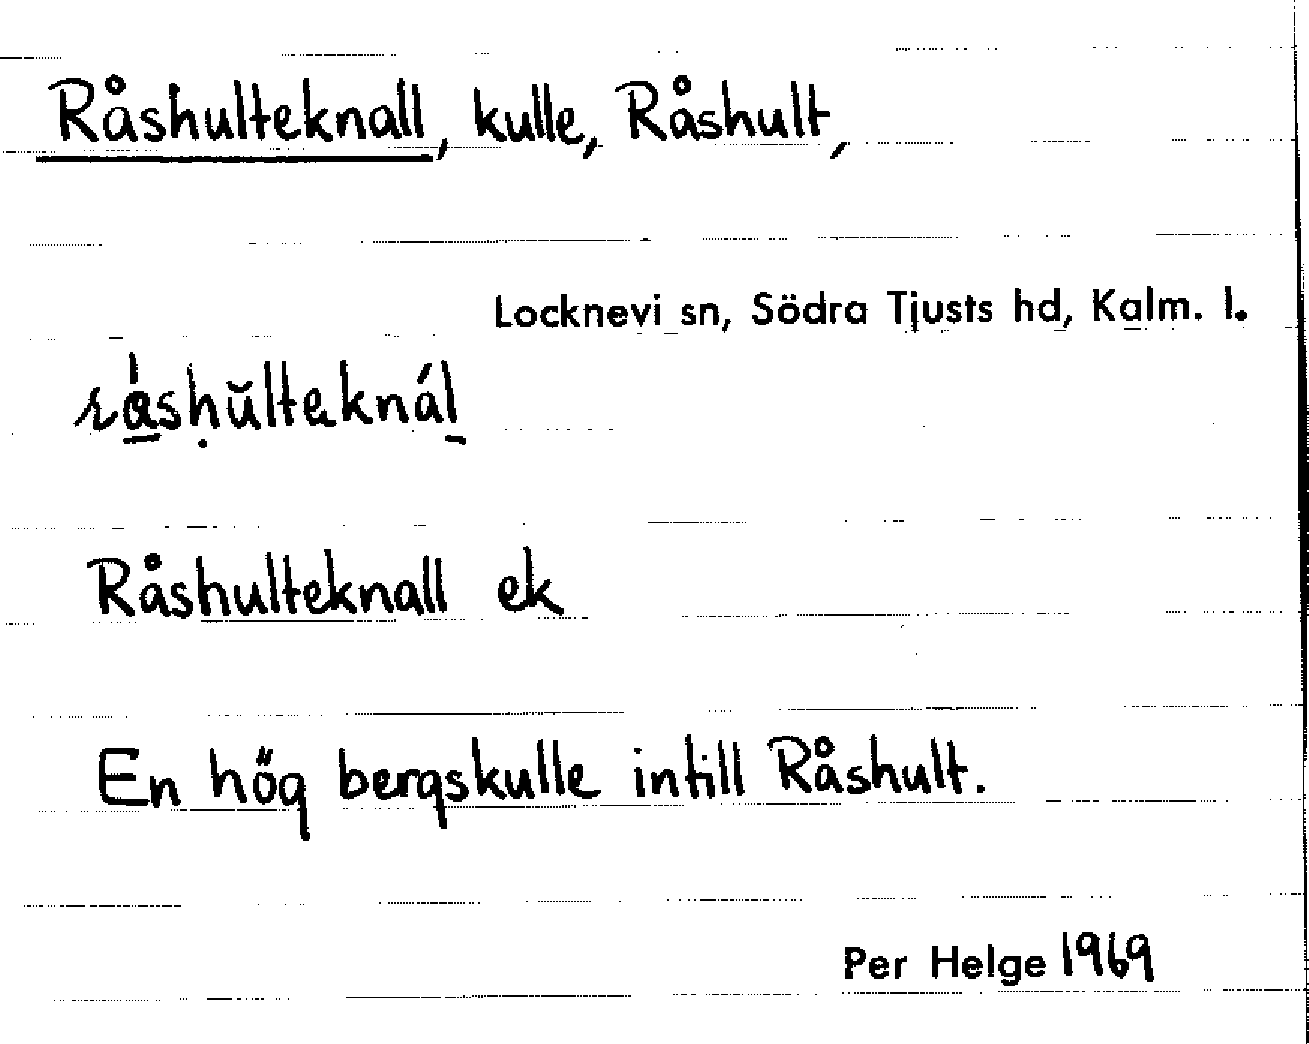 Råshulteknall, kulle, Råshult,
Locknevi sn, Södra Tjusts hd, Kalm. l.
Råshulteknall ek
En hög bergskulle intill Råshult.
Per Helge 1969